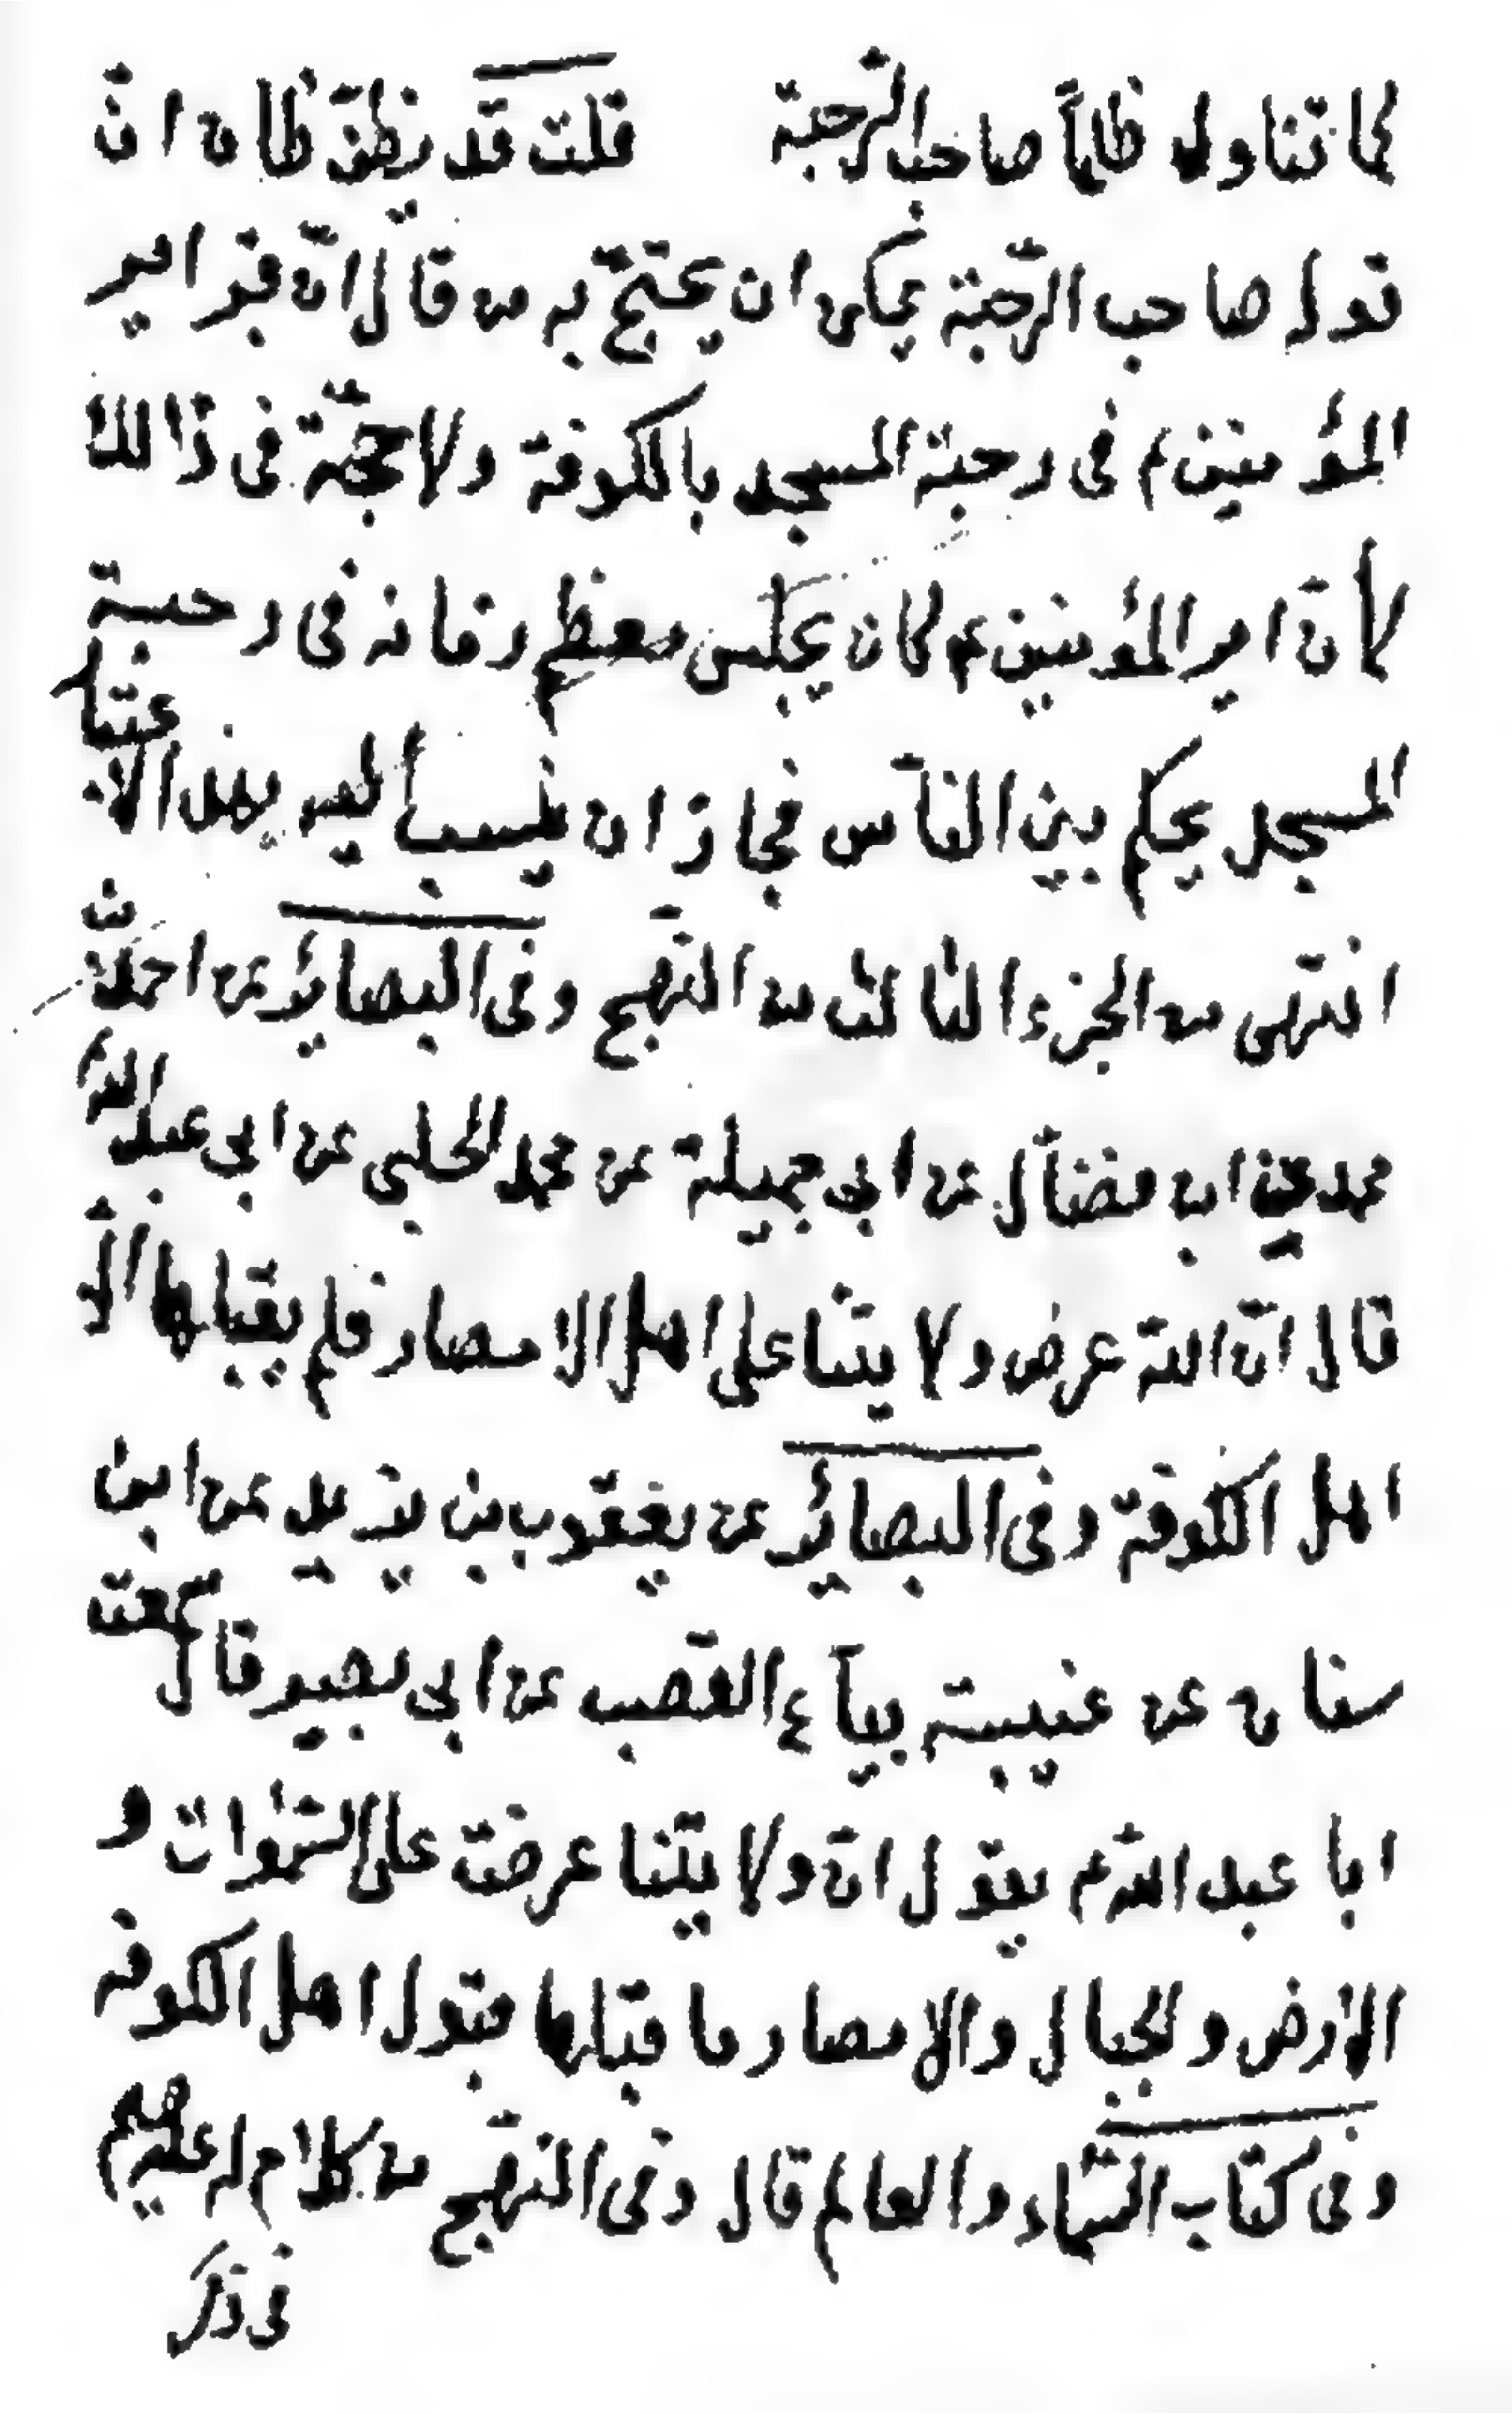 لما تناول ظلماً صاحب الرّحبة قلت قد يظنّ ظان انّ
قول صاحب الرّحبة يمكن ان يحتجّ به من قال انّ قبر امير
المؤمنين ع فى رحبة المسجد بالكوفة ولا حجّة فى ذالك
لأنّ امير المؤمنين ع كان يجلس معظم زمانه فى رحبة
المسجد يحكم بين النّاس فجاز ان ينسب اليه بهذا الاعتبار
انتهى من الجزء الثالث من النّهج وفى البصائر عن احمد بن
محمد عن ابن فضّال عن ابى جميلة عن محمد الحلبى عن ابى عبد اللّه ع
قال انّ اللّه عرض ولايتنا على اهل الامصار فلم يقبلها الّا
اهل الكوفة وفى البصائر عن يعقوب بن يزيد عن ابن
سنان عن عتيبة بيّاع القصب عن ابى بصير قال سمعت
ابا عبد اللّه ع يقول انّ ولايتنا عرضت على السّموات و
الارض والجبال والامصار ما قبلها قبول اهل الكوفه
وفى كتاب السّماء والعالم قال وفى النّهج من كلام له عليه م
فى ذكر